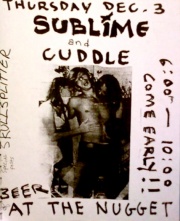 THURSDAY DEC. 3
SUBLIME
and
CUDDLE
SKULLSPLITTER
6:00 - 10:00
COME EARLY!!
BEER
AT THE NUGGET